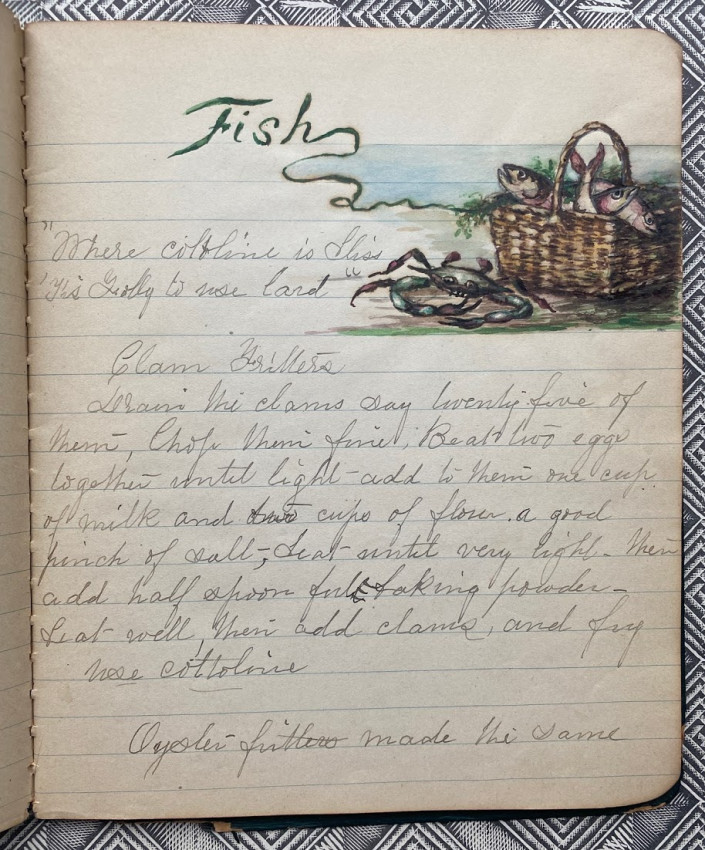 Fish
"Where cottoline is this
'Tis Folly to use lard"
Clam Fritters
Drain the clams say twenty five of
them, Chop them fine; Beat two eggs
together until light - add to them one cup
of milk and two cups of flour. a good
pinch of salt, Beat until very light - then
add half spoon full baking powder -
Beat well, then add clams, and fry
use cottoline
Oyster fritters made the same